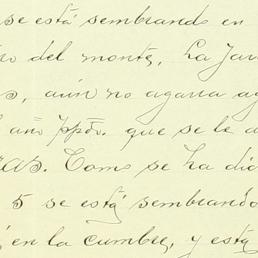 se está sembrando en
del monte, La Jav
aún no agarra ag
año ppdo. que se le a
Como se ha dic
5 se está sembrando
en la cumbre, y está